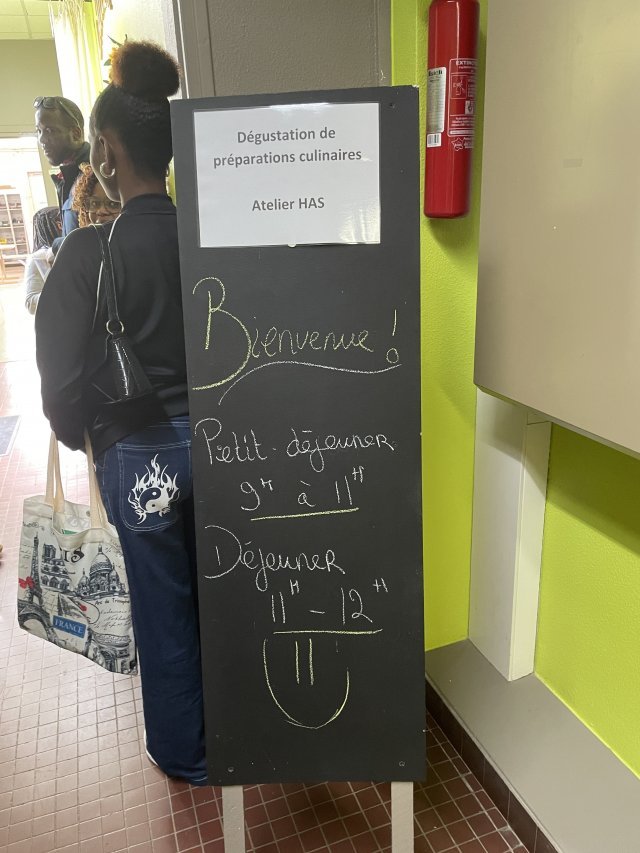 Dégustation de
préparations culinaires
Atelier HAS
Bienvenue !
Petit-déjeuner
9H à 11H
Déjeuner
11H - 12H
EXTINCTEUR
FRANCE